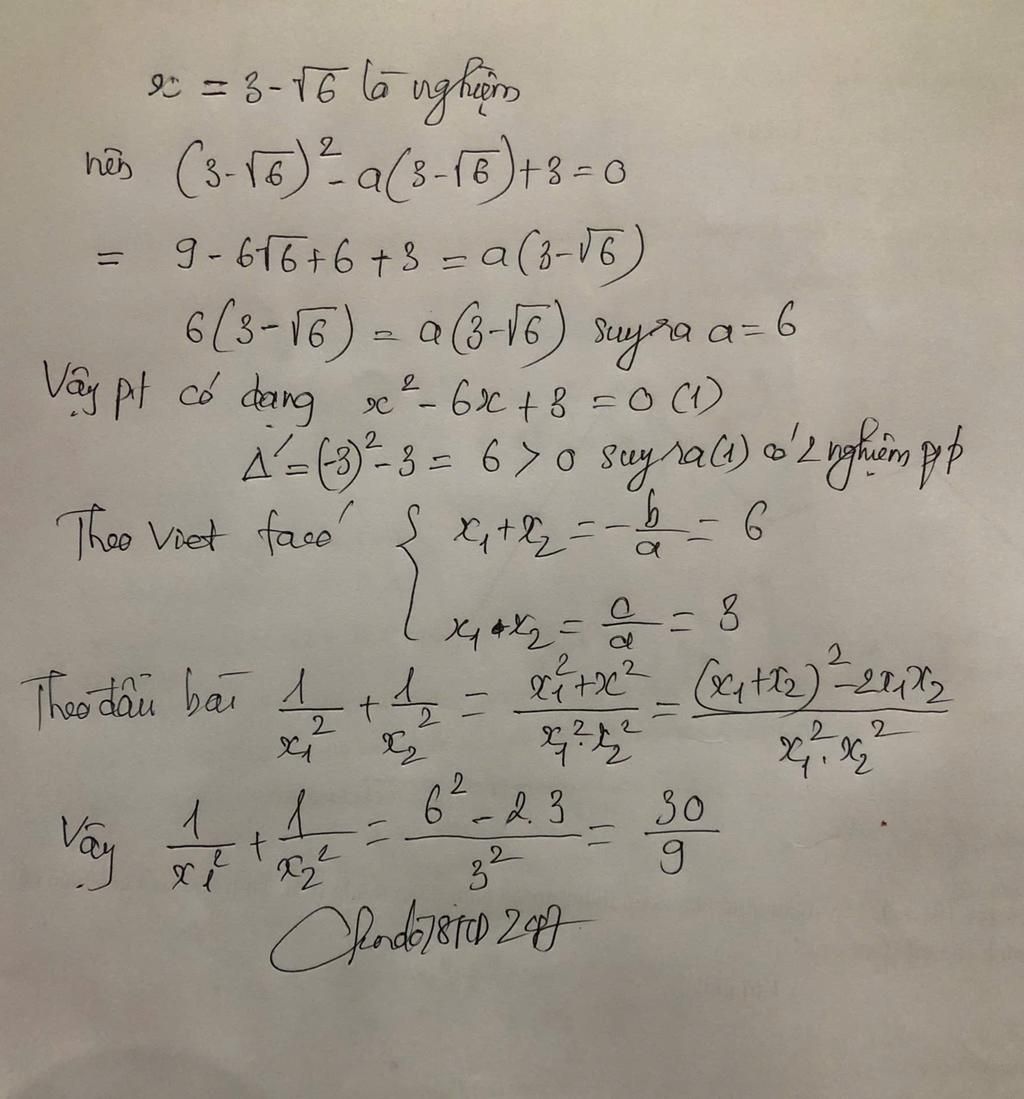 x = 3 - √6 là nghiệm
nên (3-√6)² - a(3-√6) + 3 = 0
= 9 - 6√6 + 6 + 3 = a(3-√6)
6(3-√6) = a(3-√6) suy ra a = 6
Vậy pt có dạng x² - 6x + 3 = 0 (1)
Δ' = (-3)² - 3 = 6 > 0 suy ra (1) có 2 nghiệm pb
Theo Viet ta có { x₁ + x₂ = -b/a = 6
x₁ • x₂ = c/a = 3
Theo đầu bài 1/x₁² + 1/x₂² = (x₁² + x²)/(x₁² . x₂²) = ((x₁ + x₂)² - 2x₁x₂)/(x₁² . x₂²)
Vậy 1/x₁² + 1/x₂² = (6² - 2.3)/3² = 30/9